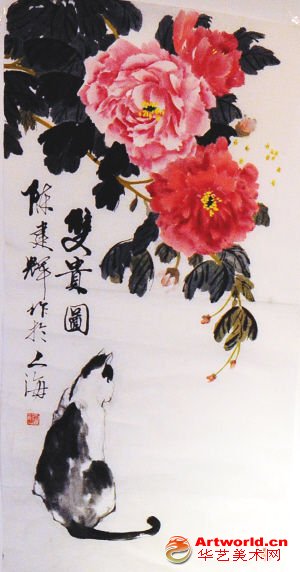 雙貴圖
陳建輝作於上海
Artworld.cn
华艺美术网